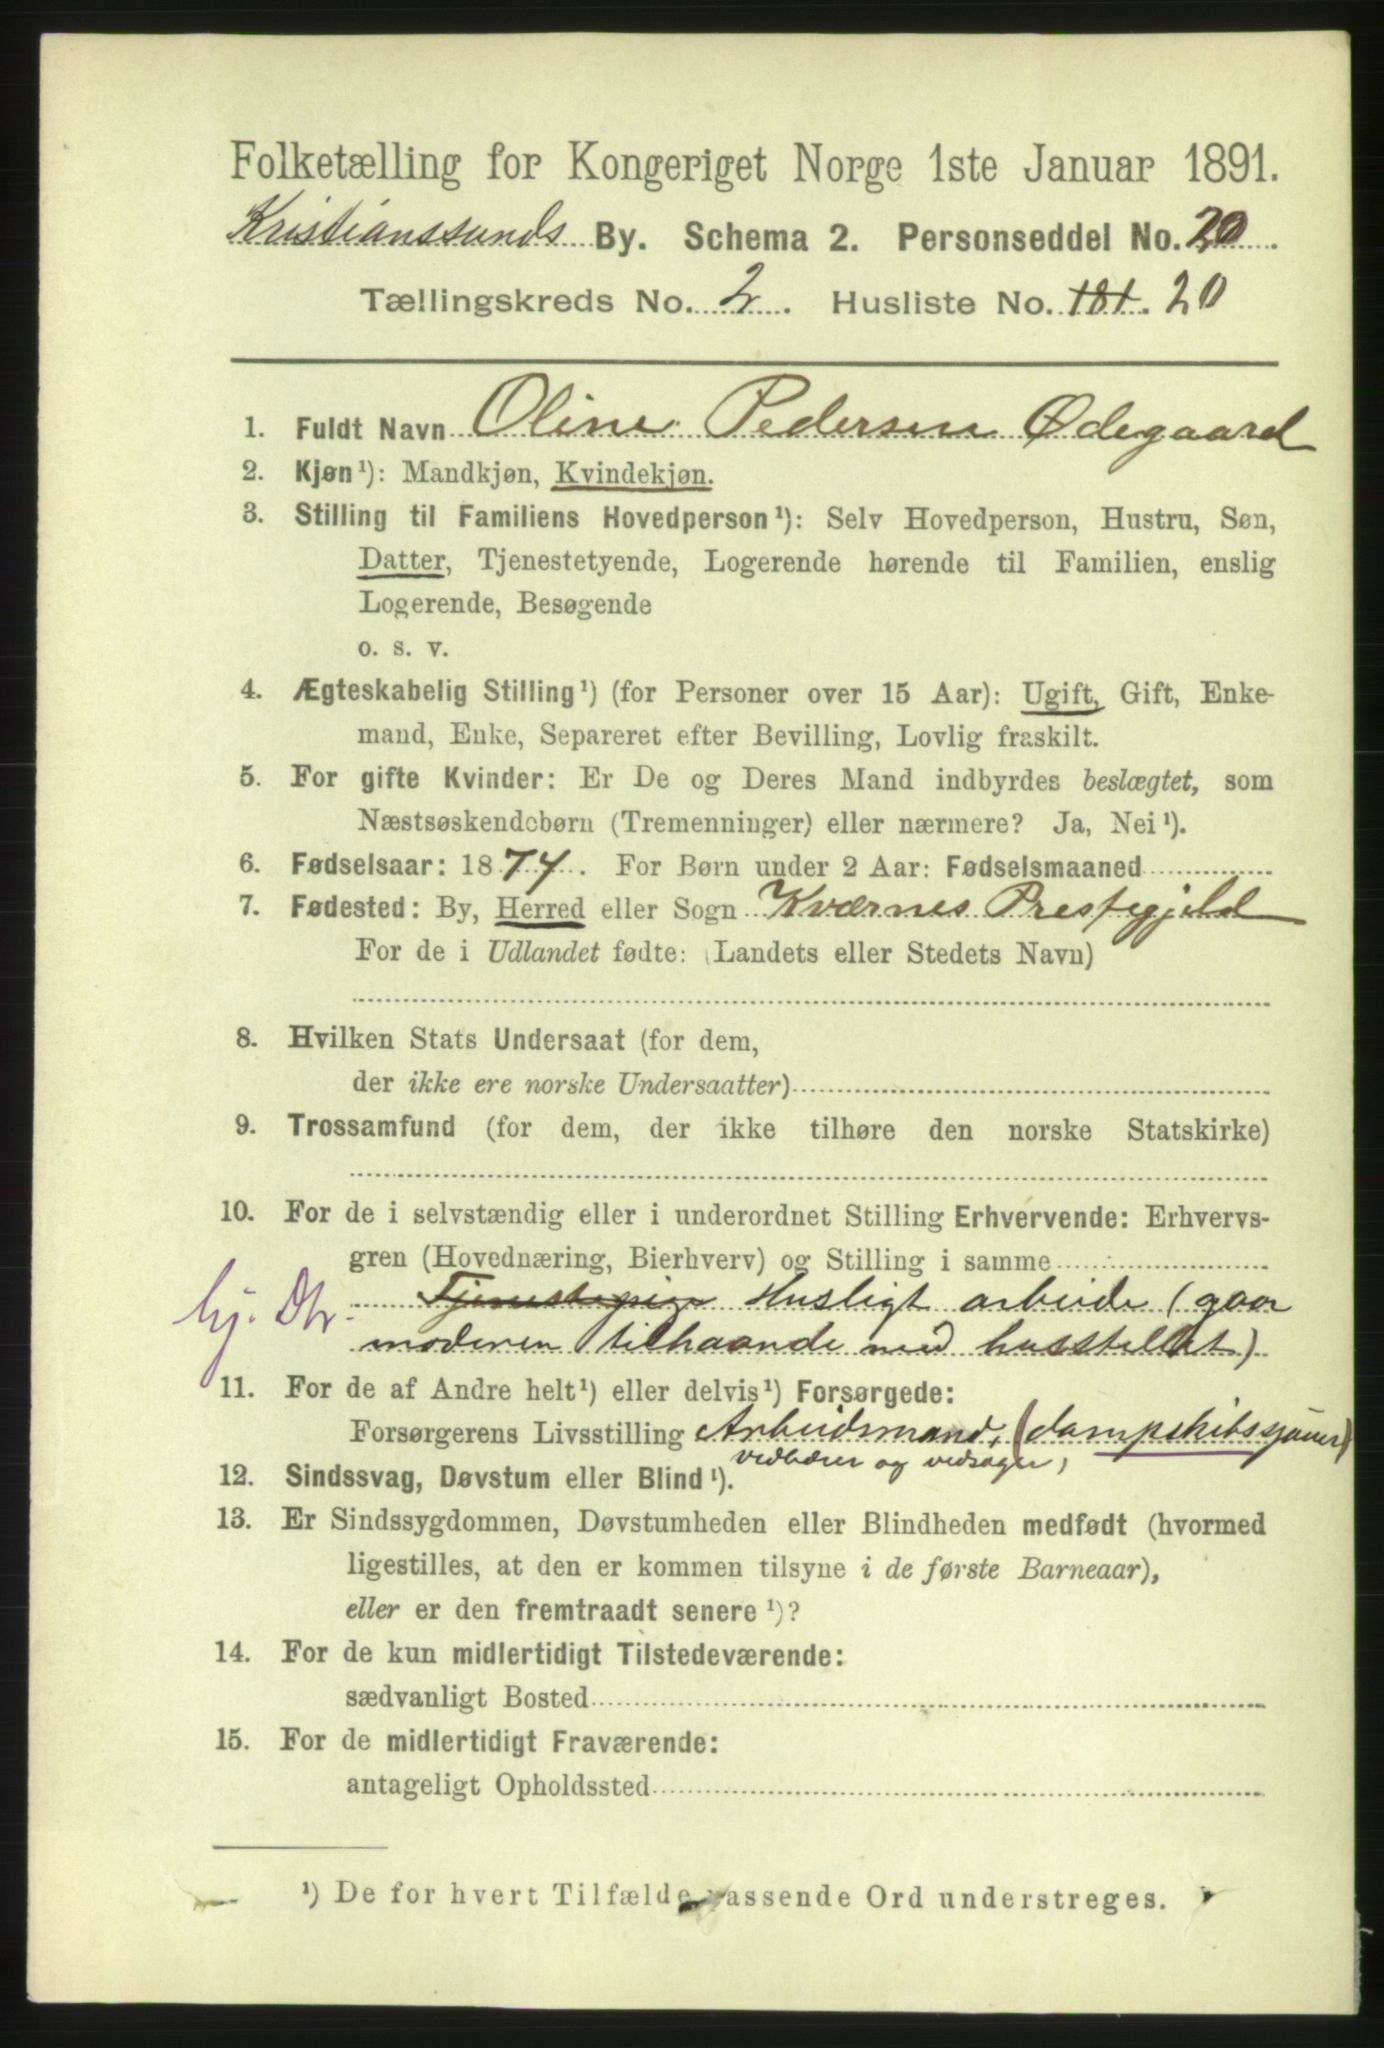 Folketælling for Kongeriget Norge 1ste Januar 1891.
Kristianssunds By. Schema 2. Personseddel No. 20
Tællingskreds No. 2. Husliste No. 181. 20
1. Fuldt Navn Oline Pedersen Ødegaard
2. Kjøn¹): Mandkjøn, Kvindekjøn.
3. Stilling til Familiens Hovedperson¹): Selv Hovedperson, Hustru, Søn,
Datter, Tjenestetyende, Logerende hørende til Familien, enslig
Logerende, Besøgende
o. s. v.
4. Ægteskabelig Stilling¹) (for Personer over 15 Aar): Ugift, Gift, Enke-
mand, Enke, Separeret efter Bevilling, Lovlig fraskilt.
5. For gifte Kvinder: Er De og Deres Mand indbyrdes beslægtet, som
Næstsøskendebørn (Tremenninger) eller nærmere? Ja, Nei¹).
6. Fødselsaar: 1874. For Børn under 2 Aar: Fødselsmaaned
7. Fødested: By, Herred eller Sogn Kværnes Prestegjeld
For de i Udlandet fødte: (Landets eller Stedets Navn)
8. Hvilken Stats Undersaat (for dem,
der ikke ere norske Undersaatter)
9. Trossamfund (for dem, der ikke tilhøre den norske Statskirke)
10. For de i selvstændig eller i underordnet Stilling Erhvervende: Erhvervs-
gren (Hovednæring, Bierhverv) og Stilling i samme
hj. Dtr. Tjenestepige Husligt arbeide (gaar
moderen tilhaande med husstellet)
11. For de af Andre helt¹) eller delvis¹) Forsørgede:
Forsørgerens Livsstilling Arbeidsmand, (dampskibssjauer)
vedbærer og vedsager,
12. Sindssvag, Døvstum eller Blind¹).
13. Er Sindssygdommen, Døvstumheden eller Blindheden medfødt (hvormed
ligestilles, at den er kommen tilsyne i de første Barneaar),
eller er den fremtraadt senere¹)?
14. For de kun midlertidigt Tilstedeværende:
sædvanligt Bosted
15. For de midlertidigt Fraværende:
antageligt Opholdssted
¹) De for hvert Tilfælde passende Ord understreges.